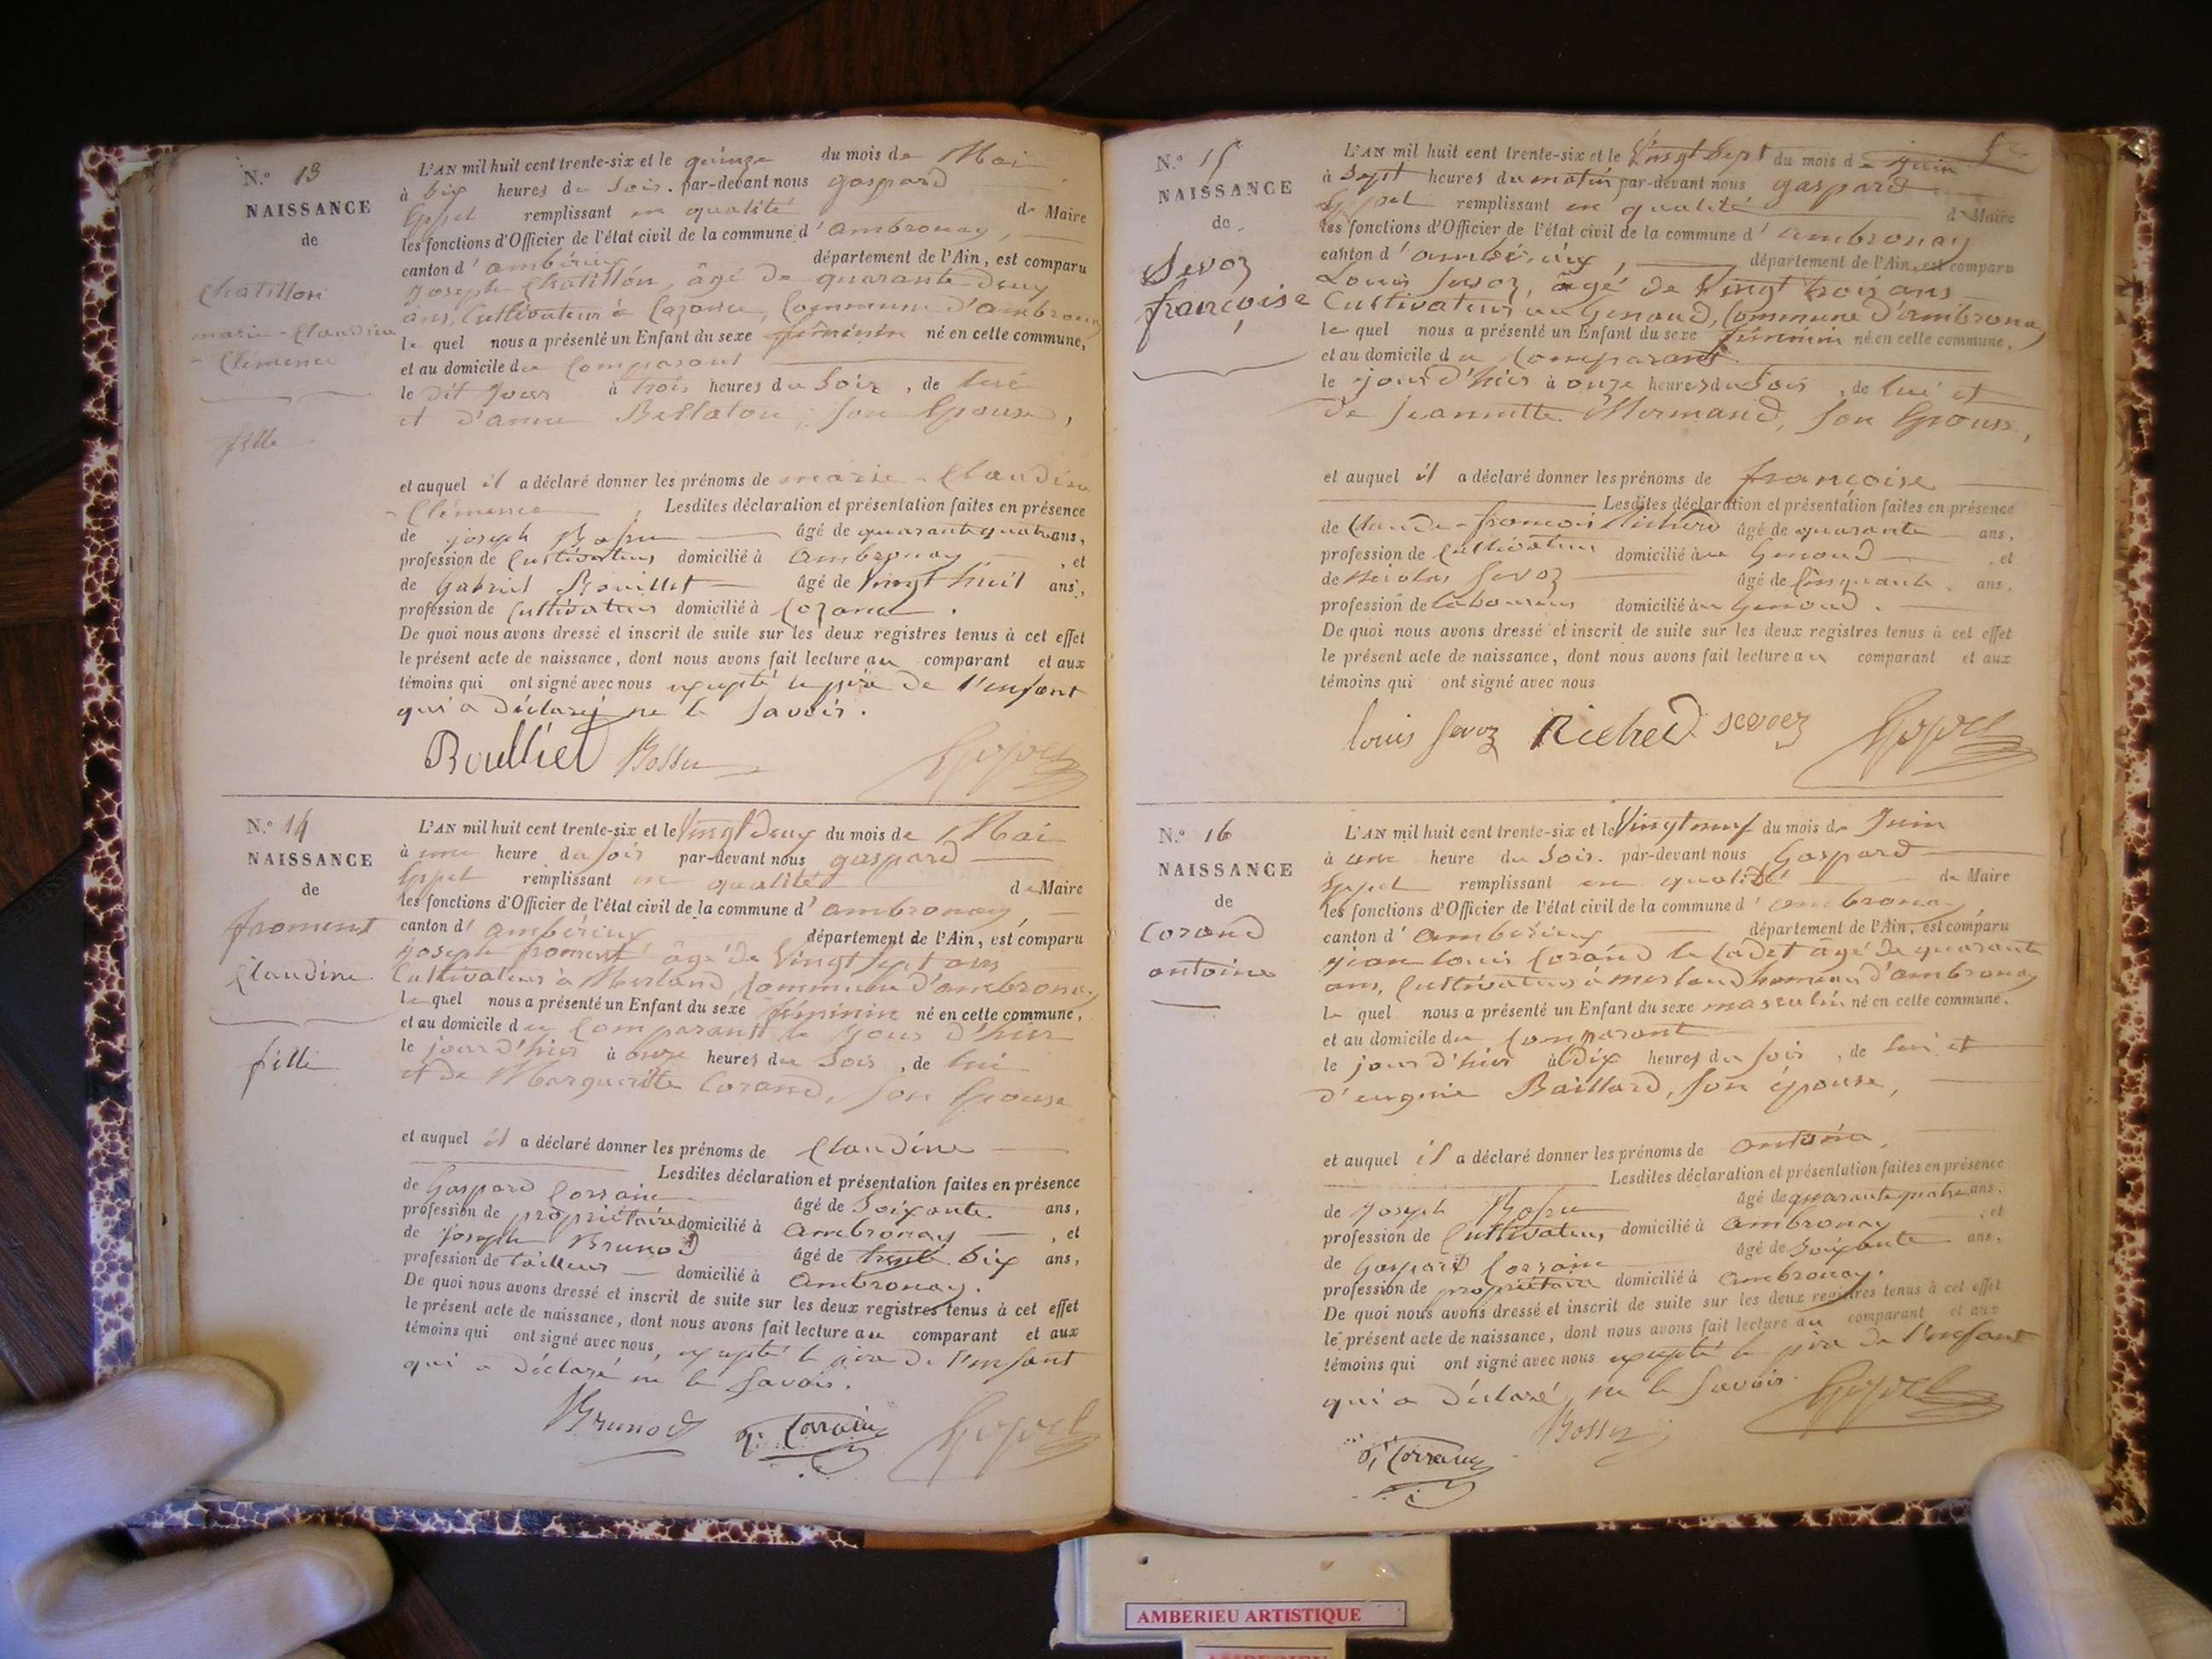 N.º 13
NAISSANCE
de
Chatillon
marie-Claudine
-Clémence
fille
L'AN mil huit cent trente-six et le quinze du mois de Mai
à six heures du soir, par-devant nous gaspard
remplissant en qualité de Maire
les fonctions d'Officier de l'état civil de la commune d'ambronay,
canton d'ambérieux département de l'Ain, est comparu
joseph Chatillon, âgé de quarante deux
ans, Cultivateur à Commune d'ambronay
le quel nous a présenté un Enfant du sexe féminin né en cette commune,
et au domicile du Comparant
le dit jour à trois heures du soir, de lui
et d'anne son Epouse,
et auquel il a déclaré donner les prénoms de marie-Claudine
-Clémence, Lesdites déclaration et présentation faites en présence
de joseph Bossu âgé de quarante quatre ans,
profession de Cultivateur domicilié à Ambronay, et
de Gabriel Rouillet âgé de Vingt huit ans,
profession de Cultivateur domicilié à
De quoi nous avons dressé et inscrit de suite sur les deux registres tenus à cet effet
le présent acte de naissance, dont nous avons fait lecture au comparant et aux
témoins qui ont signé avec nous excepté le père de l'enfant
qui a déclaré ne le savoir.
Roulliet Bossu
N.º 14
NAISSANCE
de
froment
Claudine
fille
L'AN mil huit cent trente-six et le Vingt deux du mois de Mai
à une heure du soir par-devant nous gaspard
remplissant en qualité de Maire
les fonctions d'Officier de l'état civil de la commune d'ambronay
canton d'ambérieux département de l'Ain, est comparu
joseph froment âgé de Vingt sept ans
Cultivateur à Merland, Commune d'ambronay
le quel nous a présenté un Enfant du sexe féminin né en cette commune,
et au domicile du Comparant le jour d'hier
le jour d'hier à onze heures du soir, de lui
et de Marguerite Corand, son Epouse
et auquel il a déclaré donner les prénoms de Claudine
Lesdites déclaration et présentation faites en présence
de Gaspard Corrain âgé de Soixante ans,
profession de propriétaire domicilié à Ambronay, et
de Joseph Brunod âgé de trente six ans,
profession de tailleur domicilié à Ambronay.
De quoi nous avons dressé et inscrit de suite sur les deux registres tenus à cet effet
le présent acte de naissance, dont nous avons fait lecture au comparant et aux
témoins qui ont signé avec nous, excepté le père de l'enfant
qui a déclaré ne le savoir.
Brunod g. Corrain
N.º 15
NAISSANCE
de
Sevoz
françoise
L'AN mil huit cent trente-six et le Vingt Sept du mois de juin
à Sept heures du matin par-devant nous gaspard
remplissant en qualité de Maire
les fonctions d'Officier de l'état civil de la commune d'ambronay
canton d'ambérieux, département de l'Ain, est comparu
Louis Sevoz, âgé de Vingt trois ans
Cultivateur au Genoud, Commune d'ambronay
le quel nous a présenté un Enfant du sexe féminin né en cette commune,
et au domicile du Comparant
le jour d'hier à onze heures du soir, de lui et
de jeannette Mermand, son Epouse,
et auquel il a déclaré donner les prénoms de françoise
Lesdites déclaration et présentation faites en présence
de Claude-françois âgé de quarante ans,
profession de Cultivateur domicilié au Genoud et
de Nicolas Sevoz âgé de Cinquante ans,
profession de laboureur domicilié au Genoud.
De quoi nous avons dressé et inscrit de suite sur les deux registres tenus à cet effet
le présent acte de naissance, dont nous avons fait lecture au comparant et aux
témoins qui ont signé avec nous
louis Sevoz Richerd sevoz
N.º 16
NAISSANCE
de
Corand
antoine
L'AN mil huit cent trente-six et le Vingt neuf du mois de Juin
à une heure du soir. par-devant nous Gaspard
remplissant en qualité de Maire
les fonctions d'Officier de l'état civil de la commune d'ambronay
canton d'ambérieux département de l'Ain, est comparu
jean louis Corand le Cadet âgé de quarante
ans, Cultivateur à merland hameau d'ambronay
le quel nous a présenté un Enfant du sexe masculin né en cette commune,
et au domicile du Comparant
le jour d'hier à dix heures du soir, de lui et
d'eugénie Baillard, son épouse,
et auquel il a déclaré donner les prénoms de antoine,
Lesdites déclaration et présentation faites en présence
de Joseph Bossu âgé de quarante quatre ans,
profession de Cultivateur domicilié à Ambronay, et
de Gaspard Corrain âgé de Soixante ans,
profession de propriétaire domicilié à Ambronay.
De quoi nous avons dressé et inscrit de suite sur les deux registres tenus à cet effet
le présent acte de naissance, dont nous avons fait lecture au comparant et aux
témoins qui ont signé avec nous excepté le père de l'enfant
qui a déclaré ne le savoir.
Bossu
g. Corrain
AMBERIEU ARTISTIQUE